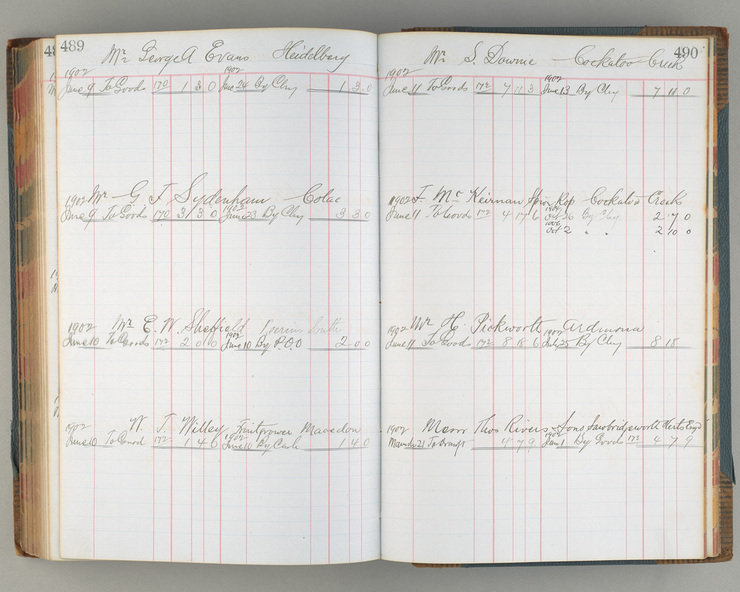 489
Mr George A Evans Heidelberg
1902 1902
June 9 To Goods 170 1 3 0 June 24 By Chq 1 3 0
1902 Mr G. F. Sydenham Colac
1902
June 9 To Goods 170 3 3 0 June 23 By Chq 3 3 0
1902 Mr E. W. Sheffield South
1902
June 10 To Goods 172 2 0 0 June 10 By P.O.O 2 0 0
1902 W. J. Willey Fruitgrower Macedon
1902
June 10 To Good 172 1 4 0 June 10 By Cash 1 4 0
490
Mr S Downie Cockatoo Creek
1902 1902
June 11 To Goods 172 7 11 3 June 13 By Chq 7 11 0
1902 F. Mc Keirnan Cockatoo Creek
June 11 To Goods 172 4 17 6 Oct 26 By Chq 2 7 0
1902
Oct 2 " " 2 10 0
1902 Mr H. Pickworth Ardmona
1902
June 11 To Goods 172 8 18 6 July 25 By Chq 8 18
1902 Messrs Thos Rivers & Sons Sawbridgeworth Herts Engd
1902
March 21 To Draft 4 7 9 June 1 By Good 172 4 7 9